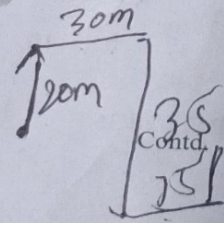 30m
20m
35
Contd.
15